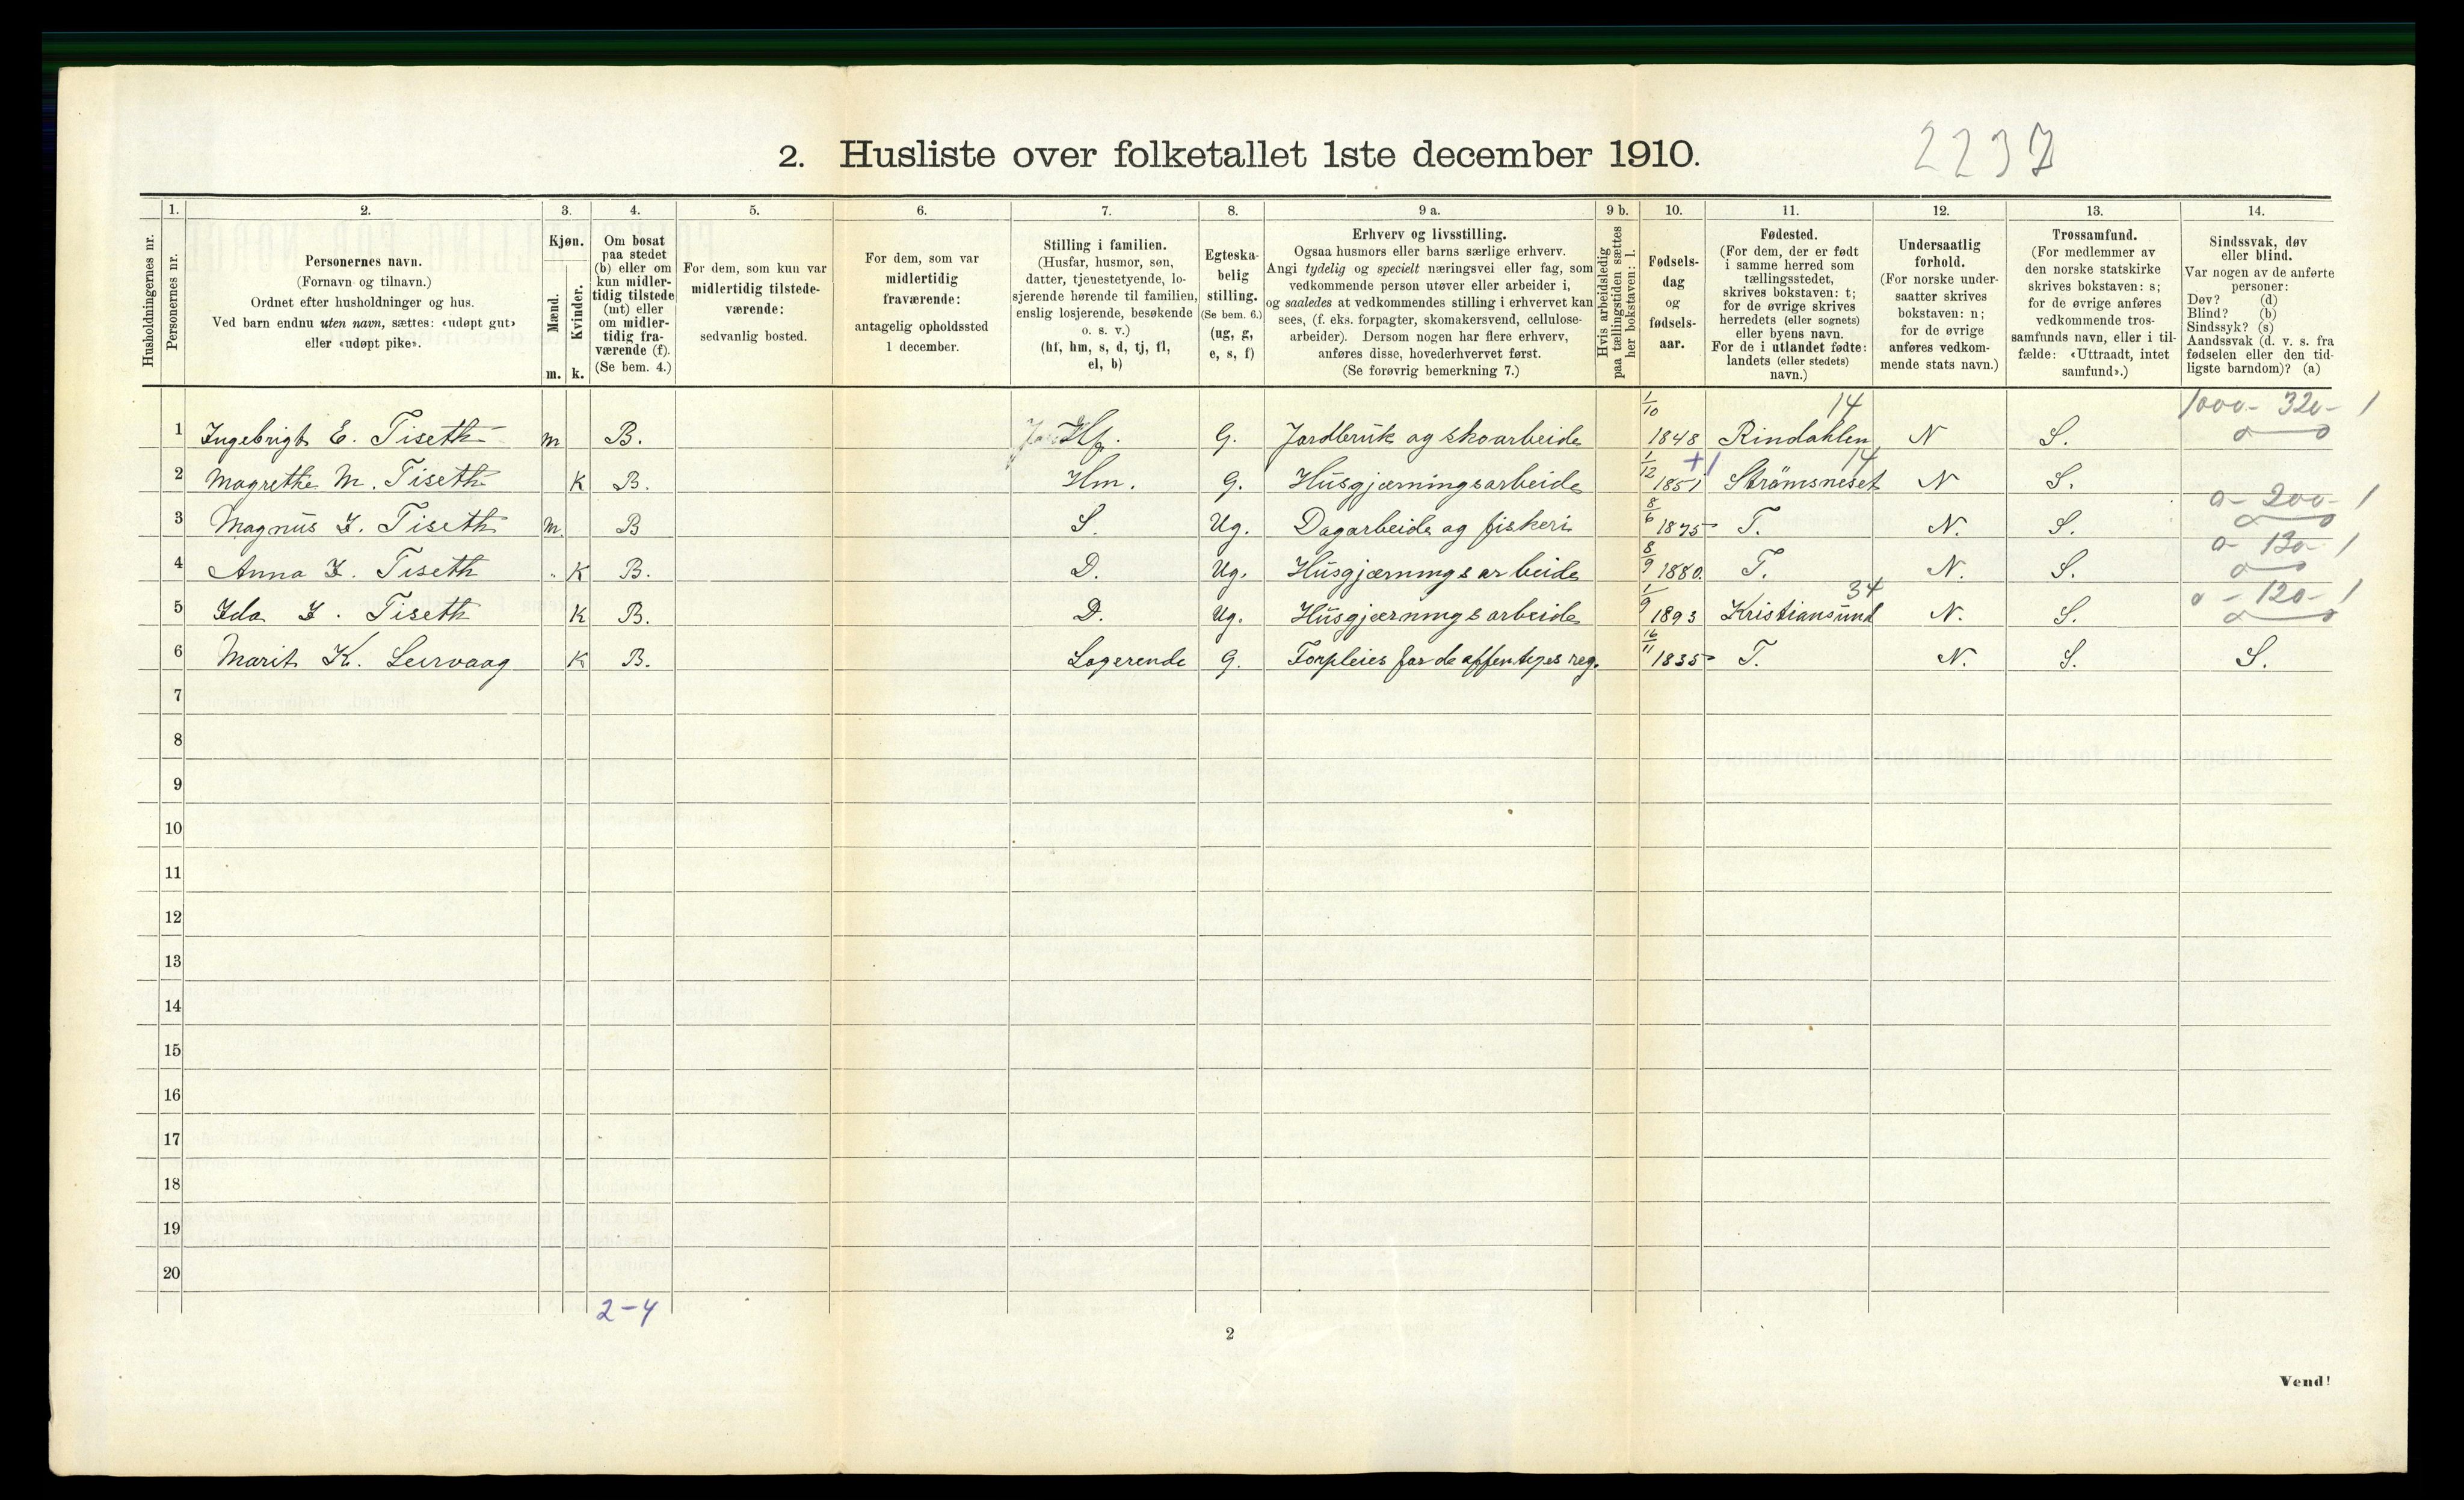 2. Husliste over folketallet 1ste december 1910. 2237
Husholdningernes nr.
1. Personernes nr.
2. Personernes navn.
(Fornavn og tilnavn.)
Ordnet efter husholdninger og hus.
Ved barn endnu uten navn, sættes: «udøpt gut»
eller «udøpt pike».
3. Kjøn.
Mænd. m.
Kvinder. k.
4. Om bosat
paa stedet
(b) eller om
kun midler-
tidig tilstede
(mt) eller
om midler-
tidig fra-
værende (f).
(Se bem. 4.)
5. For dem, som kun var
midlertidig tilstede-
værende:
sedvanlig bosted.
6. For dem, som var
midlertidig
fraværende:
antagelig opholdssted
1 december.
7. Stilling i familien.
(Husfar, husmor, søn,
datter, tjenestetyende, lo-
sjerende hørende til familien,
enslig losjerende, besøkende
o. s. v.)
(hf, hm, s, d, tj, fl,
el, b)
8. Egteska-
belig
stilling.
(Se bem. 6.)
(ug, g,
e, s, f)
9 a. Erhverv og livsstilling.
Ogsaa husmors eller barns særlige erhverv.
Angi tydelig og specielt næringsvei eller fag, som
vedkommende person utøver eller arbeider i,
og saaledes at vedkommendes stilling i erhvervet kan
sees, (f. eks. forpagter, skomakersvend, cellulose-
arbeider). Dersom nogen har flere erhverv,
anføres disse, hovederhvervet først.
(Se forøvrig bemerkning 7.)
9 b. Hvis arbeidsledig
paa tællingstiden sættes
her bokstaven: l.
10. Fødsels-
dag
og
fødsels-
aar.
11. Fødested.
(For dem, der er født
i samme herred som
tællingsstedet,
skrives bokstaven: t;
for de øvrige skrives
herredets (eller sognets)
eller byens navn.
For de i utlandet fødte:
landets (eller stedets)
navn.)
12. Undersaatlig
forhold.
(For norske under-
saatter skrives
bokstaven: n;
for de øvrige
anføres vedkom-
mende stats navn.)
13. Trossamfund.
(For medlemmer av
den norske statskirke
skrives bokstaven: s;
for de øvrige anføres
vedkommende tros-
samfunds navn, eller i til-
fælde: «Uttraadt, intet
samfund».)
14. Sindssvak, døv
eller blind.
Var nogen av de anførte
personer:
Døv? (d)
Blind? (b)
Sindssyk? (s)
Aandssvak (d. v. s. fra
fødselen eller den tid-
ligste barndom)? (a)
1 Ingebrigt E. Tiseth m B. Hf. G. Jordbruk og skoarbeide 1/10 1848 Rindahlen 14 N S. 1000- 320- 1
2 Magrethe M. Tiseth K B. Hm. G. Husgjærningsarbeide 1/12 1851 +1 Strømsneset 14 N S.
3 Magnus I. Tiseth m. B S. Ug. Dagarbeide og fiskeri 8/6 1875 T. N. S. 0- 200- 1
4 Anna I. Tiseth K B. D. Ug. Husgjærningsarbeide 8/9 1880. T. N. S. 0- 130- 1
5 Ida I. Tiseth K B. D. Ug. Husgjærningsarbeide 1/9 1893 Kristiansund 34 N. S. 0- 120- 1
6 Marit K. Leirvaag K B. Logerende G. Forpleies for de offenteges reg. 16/11 1835 T. N. S. S.
7
8
9
10
11
12
13
14
15
16
17
18
19
20
2-4
2
Vend!